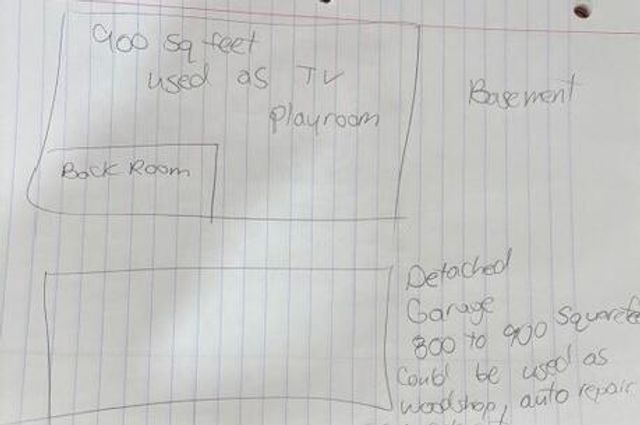 900 sq feet
used as TV
Playroom
Basement
Back Room
Detached
Garage
800 to 900 Square
Could be used as
woodshop, auto repair